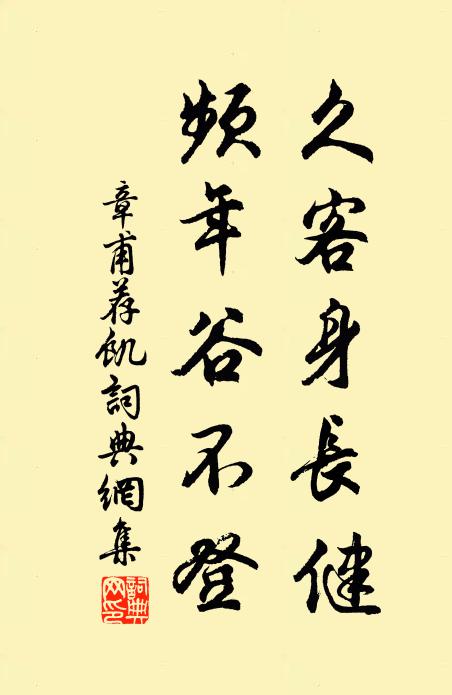 久客身長健
頻年谷不登
章甫荐飢詞典網集
詞典網印